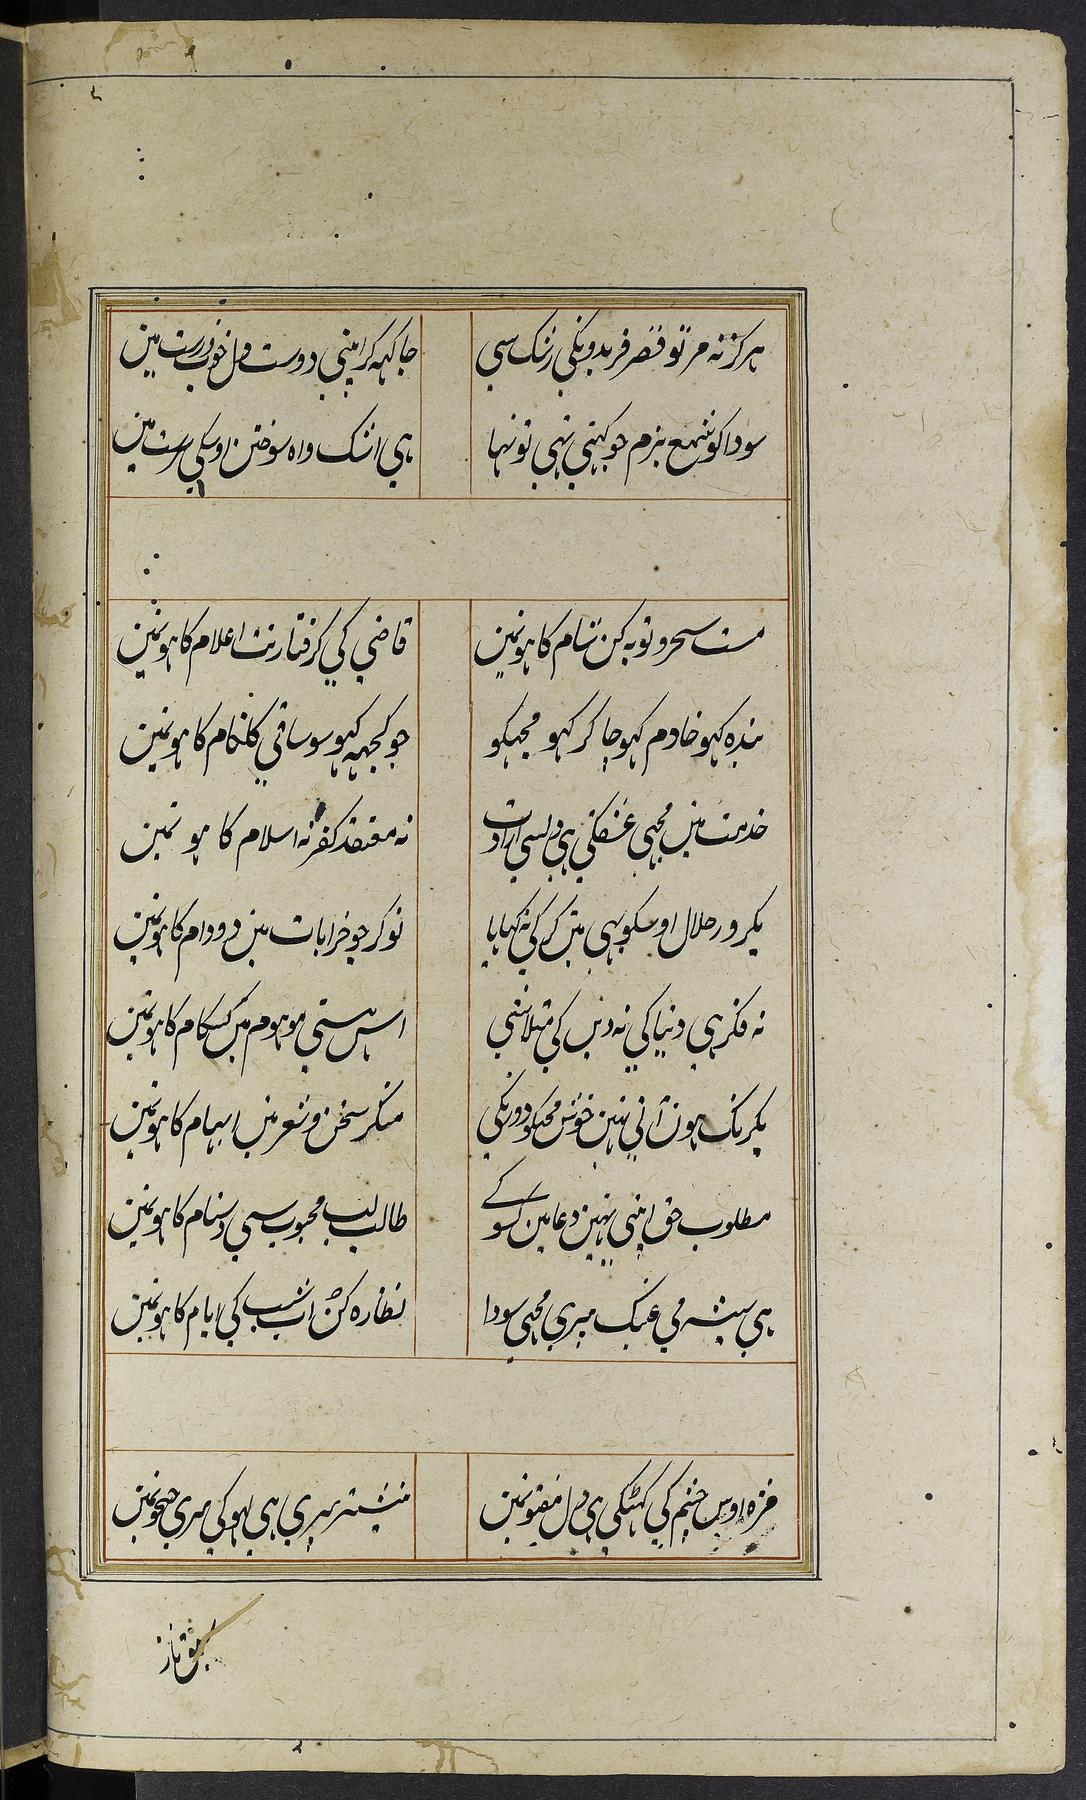 هرکز نه مر تو قصر فریدونکی رنک سی جا کهه کر اپنی دوست دل خوب زرت مین
سودا کو شمع بزم جو کهتی تهی تو نها هی اشک واه سوختن اوسکی سرشت مین
مست سحر و توبه کن شام کا هونمین قاضی کی کرفتار نت اعلام کا هونمین
بنده کهو خادم کهو چاکر کهو مجهکو جو کجهه کهو سو ساقی کلفام کا هونمین
خدمت مین مجهی عشقکی هی دلسی ارادت نه معتقد کفر نه اسلام کا هونمین
یکروز حلال اوسکو بهی مین کرکی نه کهایا نوکر جو خرابات مین دو دام کا هونمین
نه فکر هی دنیا کی نه دین کی متلاشی اس هستی موهوم مین کسکام کا هونمین
یکرنک هون اتی نهین خوش مجکو دورنکی منکر سخن و شعر مین ایهام کا هونمین
مطلوب حق اپنی نهین دعا مین کسو کے طالب لب محبوب سی دشنام کا هونمین
هی شیشه می عینک پیری مجهی سودا نظاره کش اب شب کی ایام کا هونمین
مژه اوس چشم کی کهٹکی هی دل مفتونمین نیشتر تیری هی لهو کی میری جیحونمین
کس ناز